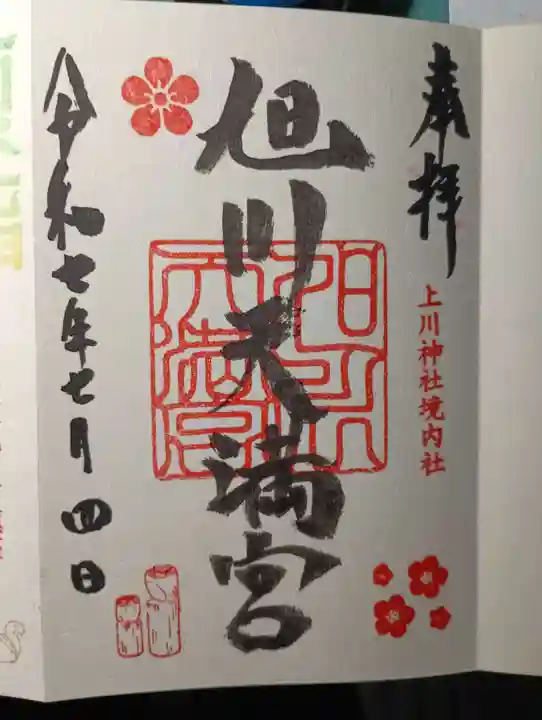 奉拝
上川神社境内社
旭川天満宮
旭川天満宮
令和七年七月四日